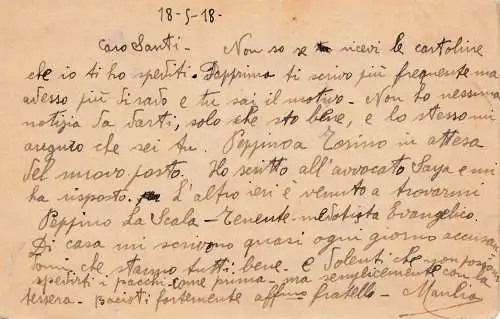 18-5-18.
Caro Santi - Non so se ricevi le cartoline
che io ti ho spediti. Dapprima ti scrivo più frequente ma
adesso più di rado e tu sai il motivo. Non ho nessuna
notizia da darti, solo che sto bene, e lo stesso mi
auguro che sei tu. Peppino a Torino in attesa
del nuovo posto. Ho scritto all'avvocato Saya e mi
ha risposto. L'altro ieri è venuto a trovarmi
Peppino La Scala - Tenente - Evangelico.
Di casa mi scrivono quasi ogni giorno
che stanno tutti bene. e dolenti che non possono
spedirti i pacchi come prima - ma semplicemente con la
tessera. Bacioti fortemente affmo fratello - Manlio